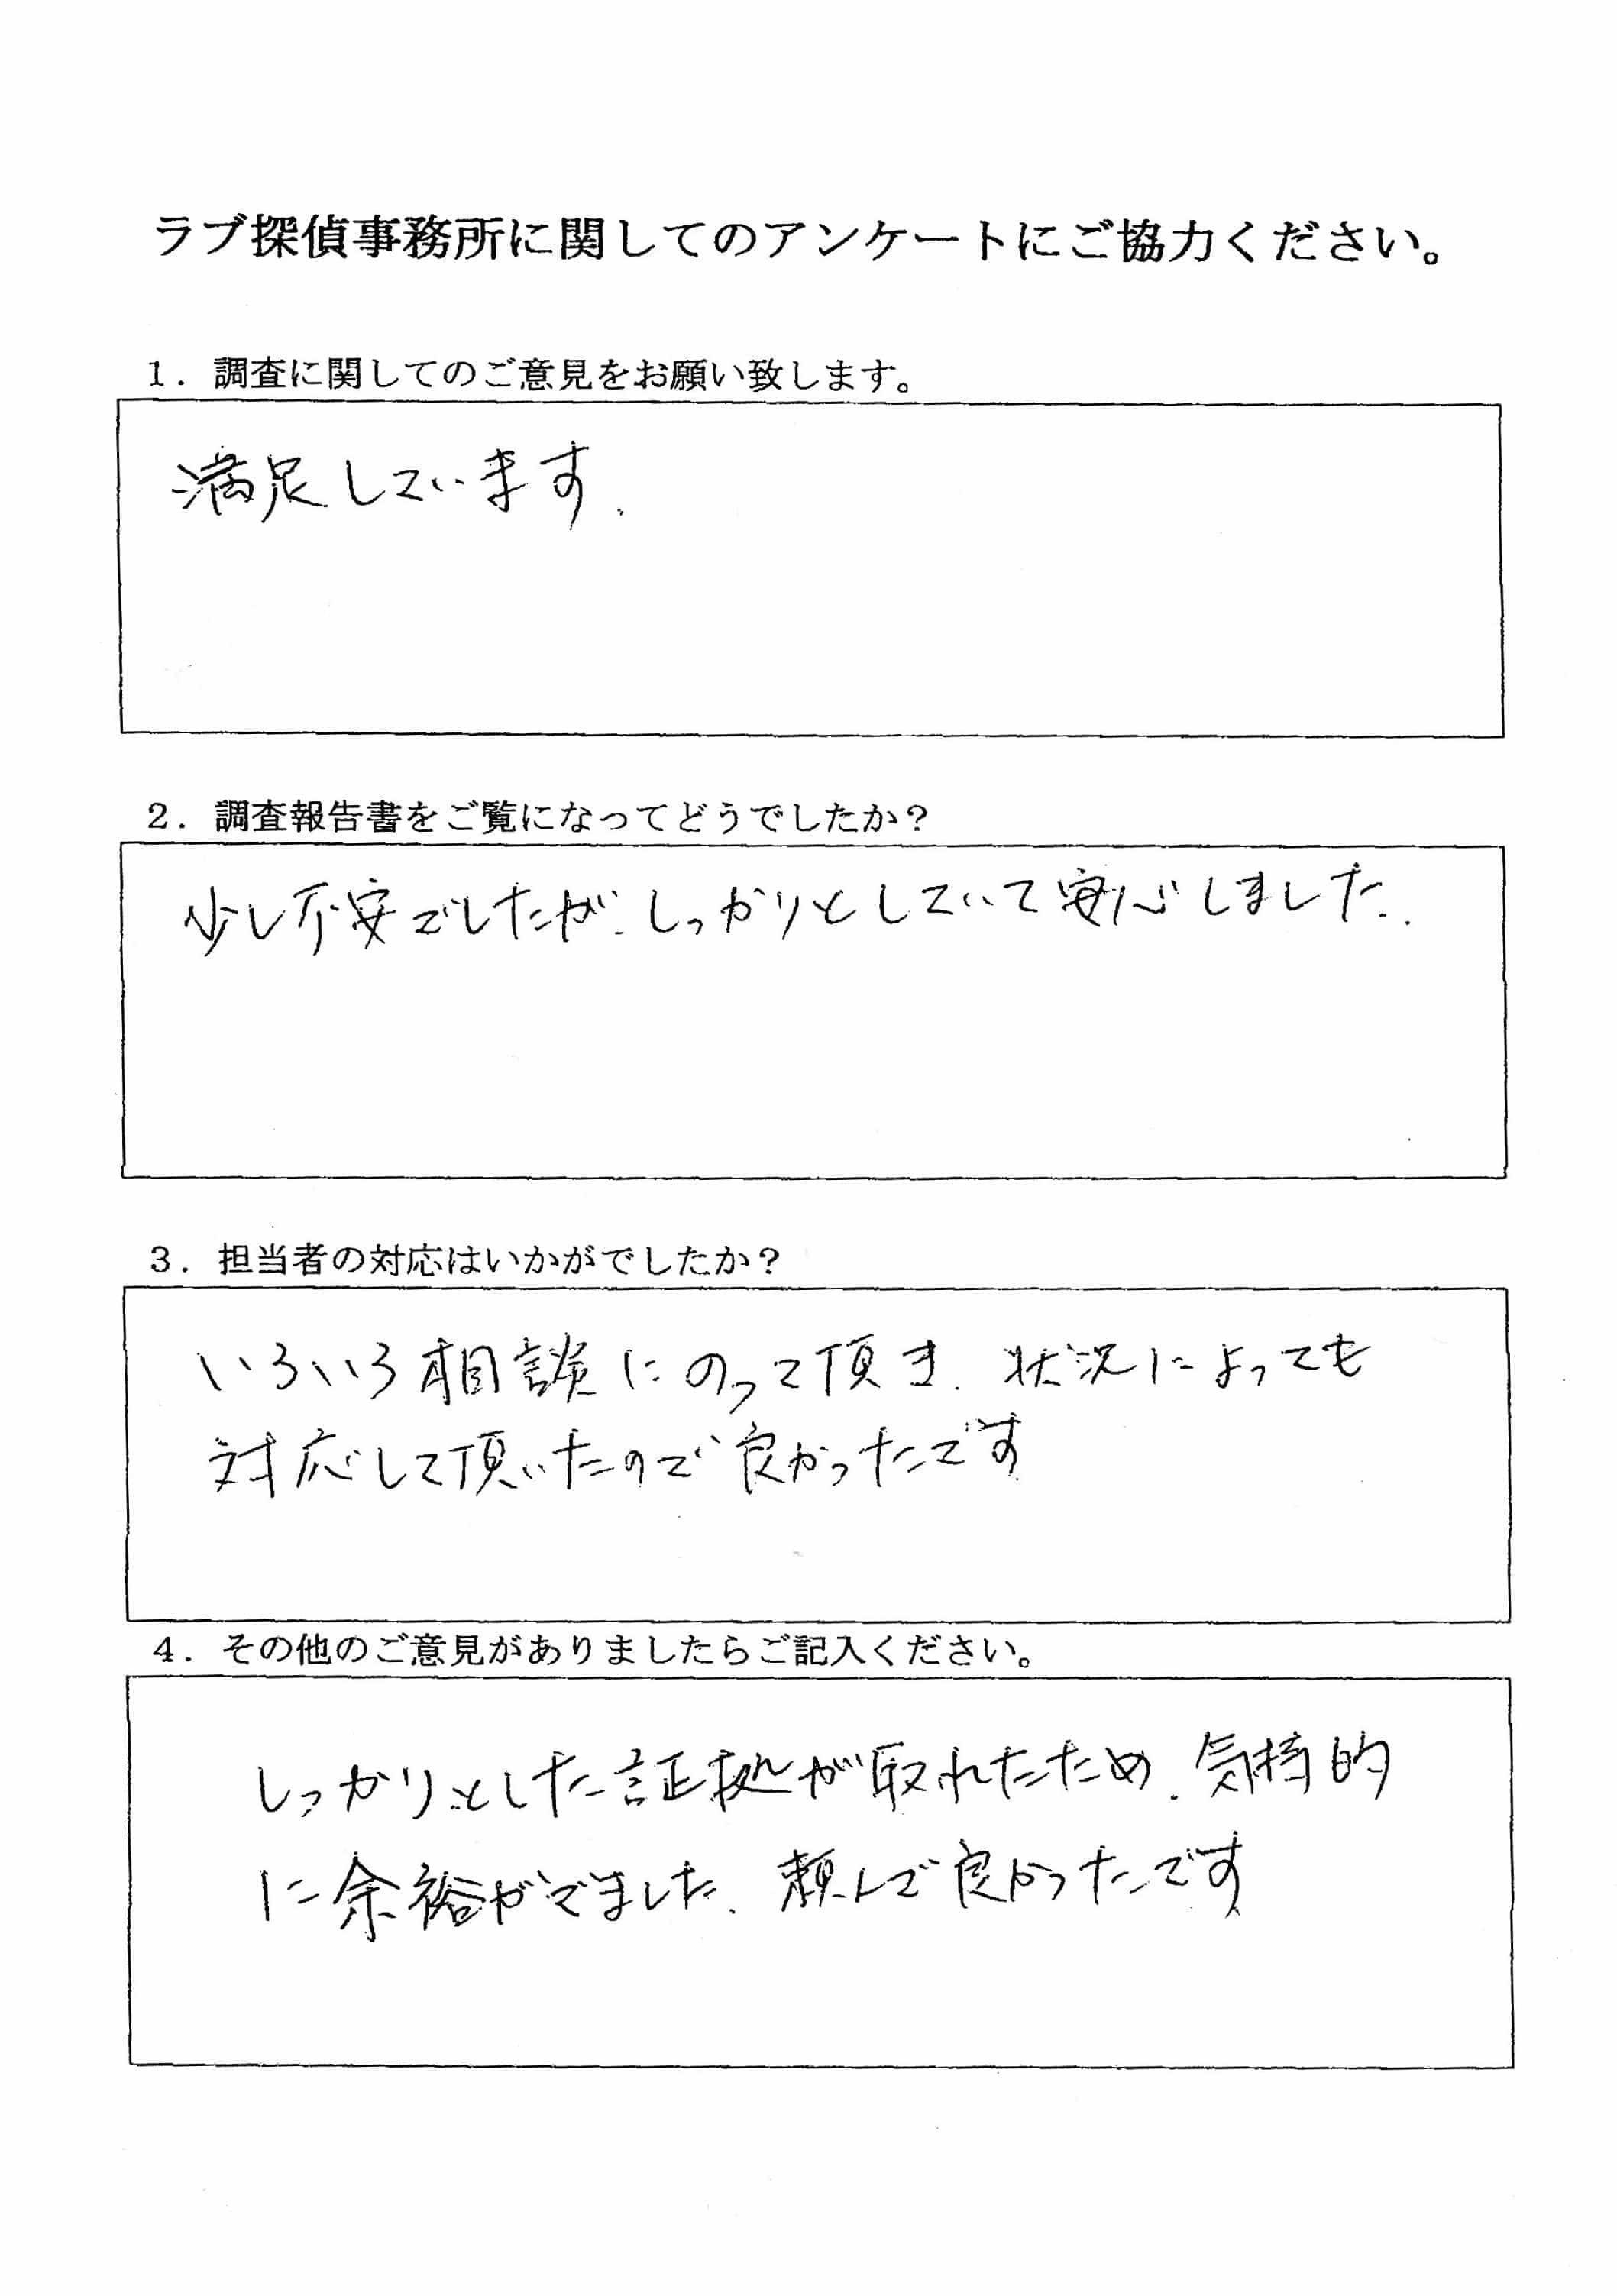 ラブ探偵事務所に関してのアンケートにご協力ください。
1. 調査に関してのご意見をお願い致します。
満足しています.
2. 調査報告書をご覧になってどうでしたか?
少し不安でしたが、しっかりとしていて安心しました.
3. 担当者の対応はいかがでしたか?
いろいろ相談にのって頂き、状況によっても
対応して頂いたので良かったです
4. その他のご意見がありましたらご記入ください。
しっかりとした証拠が取れたため、気持的
に余裕がでました、頼んで良かったです